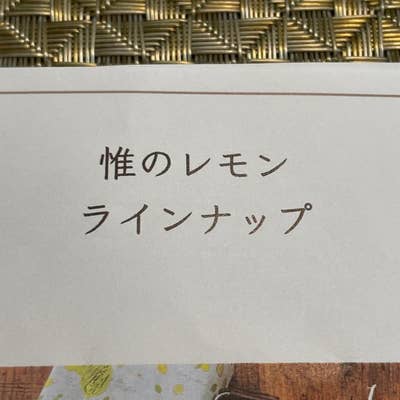 惟のレモン
ラインナップ